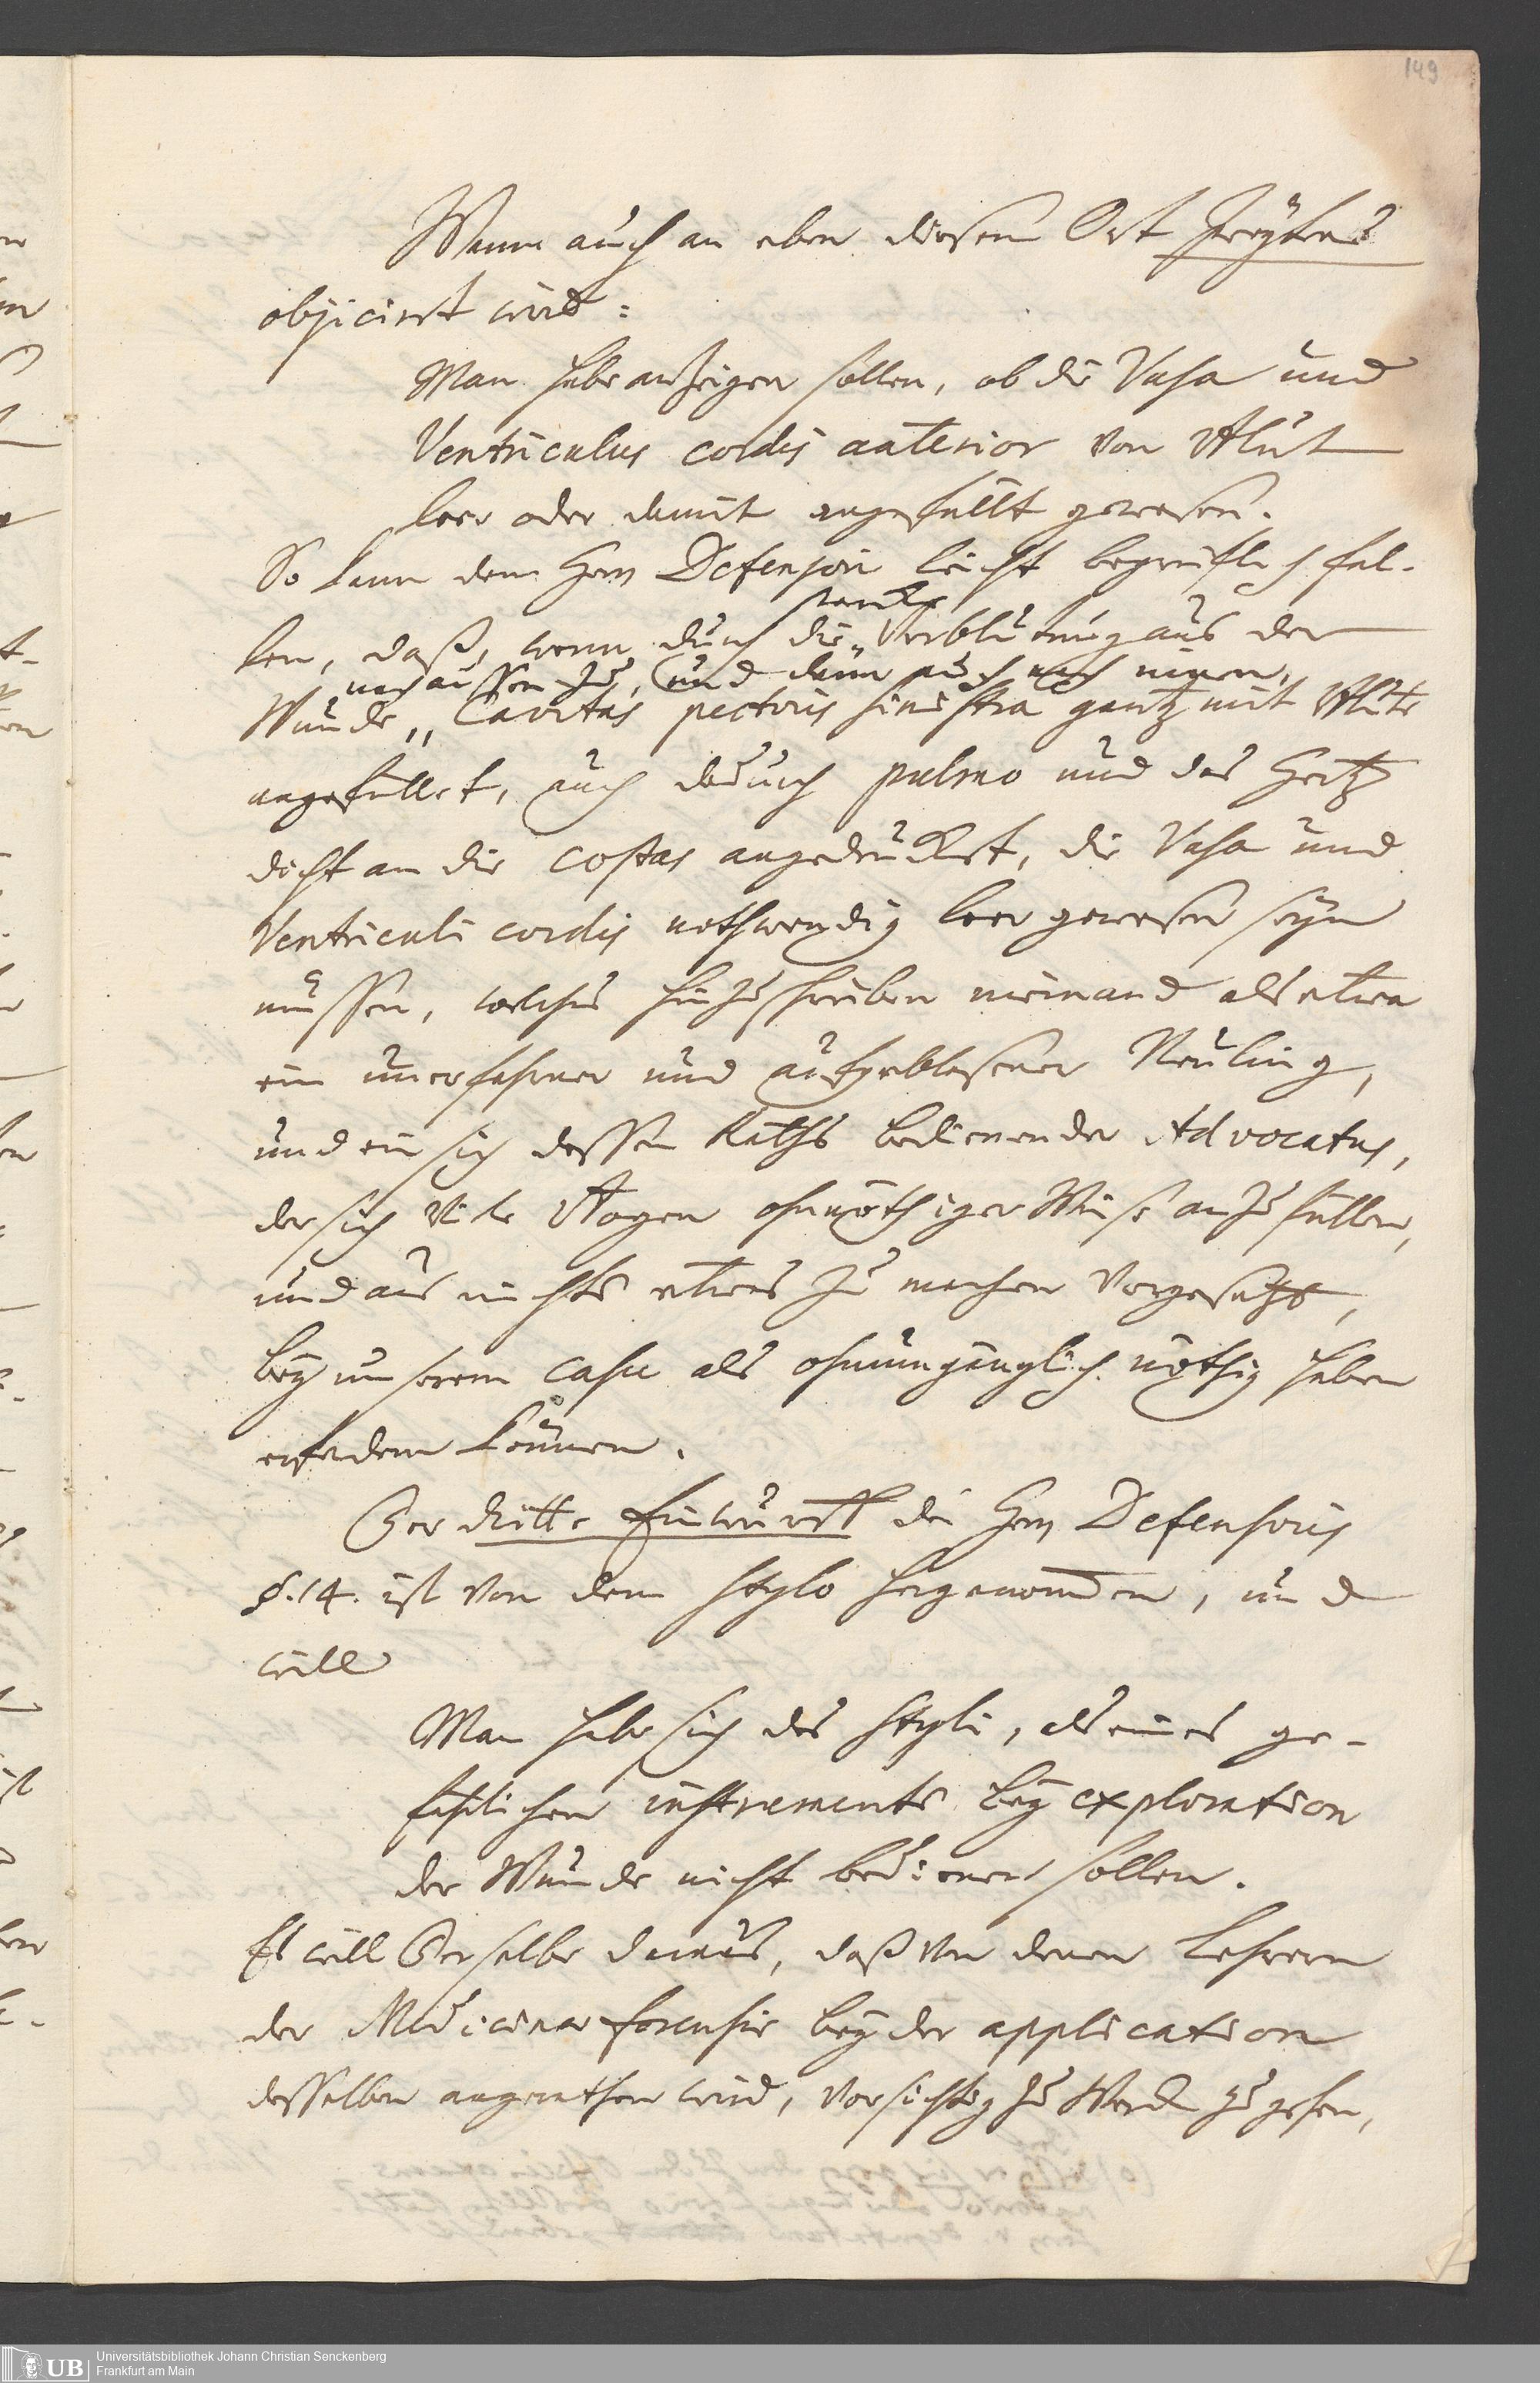 149
Wann auch an eben diesem Ort Zweytens
objicirt wird:
Man habe anzeigen sollen, ob die Vasa und
Ventriculus cordis anterior von Blut
leer oder damit angefüllt gewesen.
So kann dem Hrn Defensori leicht begreiflich fal-
starcke
len, daß, wenn durch die Verblutung aus der
nach aussen zu, und dann auch nach innen,
Wunde, Cavitas pectoris sinistra gantz mit Blut
angefüllet, auch dadurch pulmo und das Hertz
dicht an die costas angedrücket, die Vasa und
Ventriculi cordis nothwendig leer gewesen seyn
müssen, welches hinzuschreiben niemand als etwa
ein unerfahrner und aufgeblasener Neuling,
und ein sich dessen Raths bedienender Advocatus,
der sich viele Bogen ohnnöthiger Weise anzufüllen,
und aus nichts etwas zu machen vorgesetzt,
bey unserem casu als ohnumgänglich nöthig haben
erfordern können.
Der dritte Einwurff des Hrn Defensoris
§. 14. ist von dem stylo hergenommen, und
will
Man habe sich des styli, als eines ge-
fährlichen instruments bey exploration
der Wunde nicht bedienen sollen.
Es will Derselbe daraus, daß von denen Lehrern
der Medicinae forensis bey der application
desselben angerathen wird, vorsichtig zu Werck zu gehen,
UB
Universitätsbibliothek Johann Christian Senckenberg
Frankfurt am Main